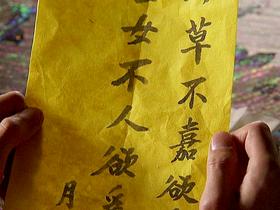 草不嘉欲
女不人欲
月